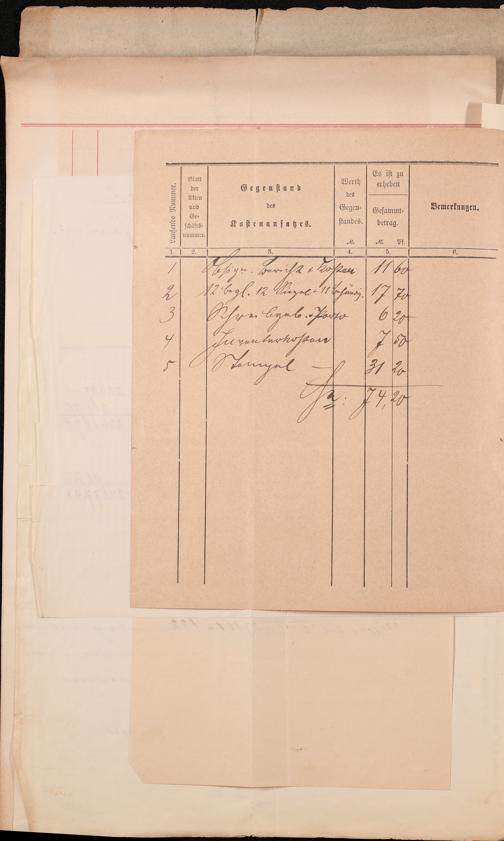 Laufende Nummer.
Blatt der Akten und Geschäftsnummer.
Gegenstand
des
Kostenansatzes.
Werth
des
Gegen-
standes.
M.
Es ist zu
erheben
Gesammt-
betrag.
M. Pf.
Bemerkungen.
1. 2. 3. 4. 5. 6.
1 Kosten 11 60
2 12 12 Siegel 11 17 70
3 Schreibgeb. Porto 6 20
4 7 50
5 Stempel — 31 20
Sa: 74,20